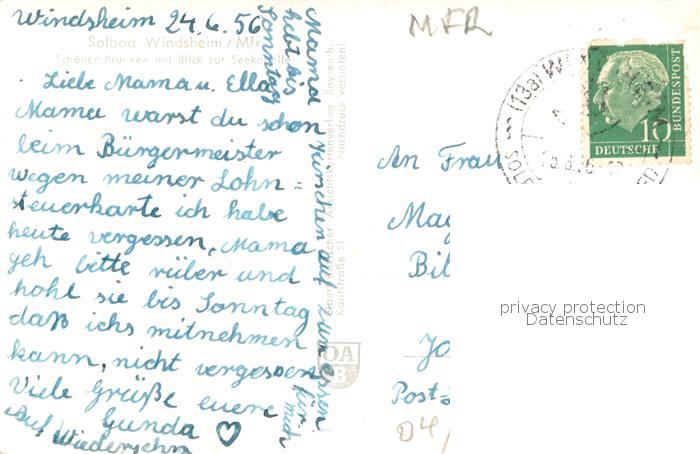 Windsheim 24.6.56
Solbad Windsheim / Mfr.
Schöner Brunnen mit Blick zur Seekapelle
Liebe Mama u. Ella
Mama warst du schon
beim Bürgermeister
wegen meiner Lohn=
steuerkarte ich habe
heute vergessen, Mama
geh bitte rüber und
hohl sie bis Sonntag
daß ichs mitnehmen
kann, nicht vergessen
Viele Grüße euere
Gunda ♡
Auf Wiedersehn
Mama
hebt bis
Sonntag
auf zum essen
für mich
Ansichtskartenverlag Bayreuth,
Kantstraße 51
Nachdruck verboten!
OA
B
MFR
(13a)
DEUTSCHE
BUNDESPOST
10
An Frau
Mag
Bil
Jo
Post=
04/
privacy protection
Datenschutz